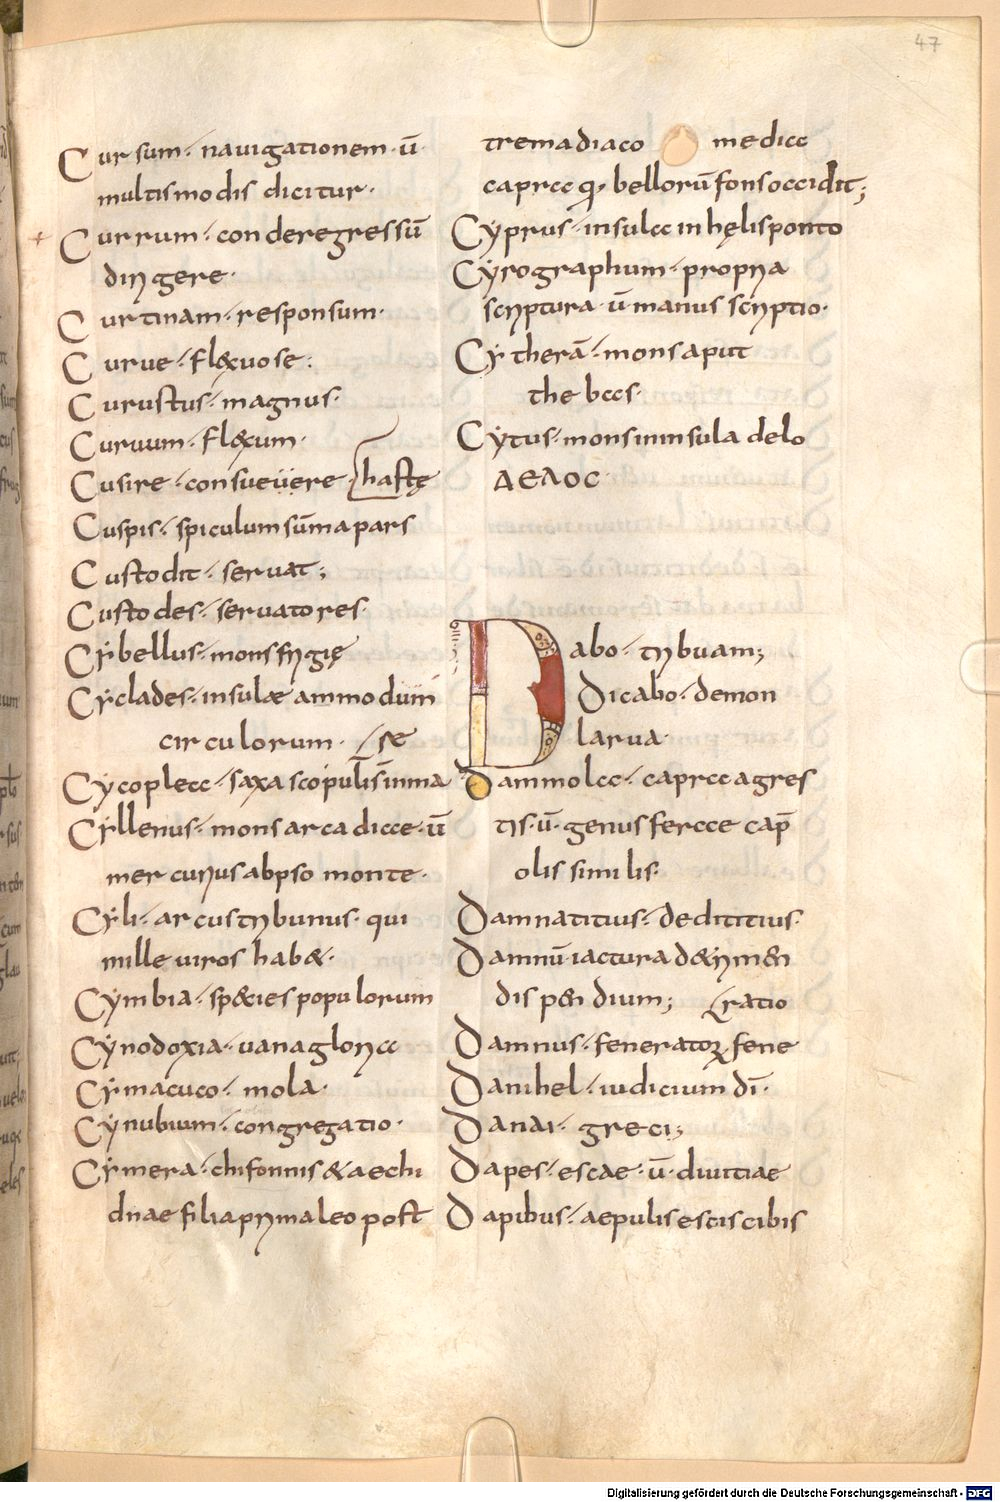 47
Cursum · nauigationem · ū ·
multismodis dicitur ·
Currum · conderegressū
dirigere ·
Curtinam · responsum ·
Curue · flexuose :
Curustus · magnus ·
Curuum · flexum ·
Cusire · consueuere hastę
Cuspis · spiculum sūma pars
Custodit · seruat ;
Custodes · seruatores ·
Cybellus · mons frygię
Cyclades · insulæ ammodum
circulorum · se
Cycoplecc · saxa scopulis inma
Cyllenus · mons arcadicce · ū
mercurius ab pso monte ·
Cyli · arcus tribunus · qui
mille uiros habet ·
Cymbia · species populorum
Cynodoxia · uana gloricc
Cymacuco · mola ·
Cynubium · congregatio ·
Cymera · chifornis & aechi
dnae filia prima leo post
trema diaco medicc
caprcc q bellorū fons occidit ;
Cyprus · insulcc in hęlisponto
Cyrographum · propria
scriptura · ū manus scriptio ·
Cytherā · mons aput
thebccs ·
Cytus · mons in insula delo
ΔΕΛΟC
Dabo · tribuam ;
Dicabo · demon
larua ·
Dammolcc · caprcc agres
tis · ū · genus fercce cap̄
olis similis ·
Damnatitius · dedititius ·
Damnū · iactura detrimen
dispendium ; ratio
Damnus · fenerator fene
Danihel · iudicium dī ·
Danai · greci ;
Dapes · escae · ū · diuitiae
Dapibus · aepulis escis cibis
Digitalisierung gefördert durch die Deutsche Forschungsgemeinschaft - DFG